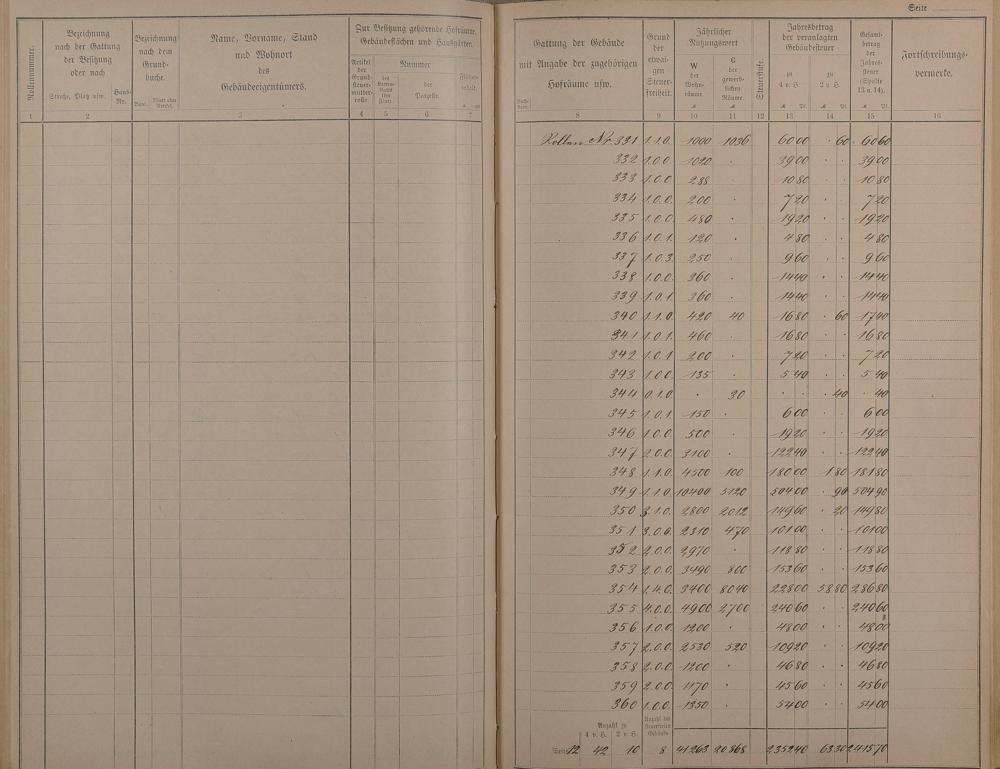 Seite
Rollennummer.
Bezeichnung
nach der Gattung
der Besitzung
oder nach
Straße, Platz usw.
Haus-
Nr.
Bezeichnung
nach dem
Grund-
buche.
Band.
Name, Vorname, Stand
und Wohnort
des
Gebäudeeigentümers.
Zur Besitzung gehörende Hofräume,
Gebäudeflächen und Hausgärten.
Artikel
der
Grund-
steuer-
mutter-
rolle
Nummer
des
der
Parzelle.
Flächen-
inhalt.
1 2 3 4 5 6 7
Gattung der Gebäude
mit Angabe der zugehörigen
Hofräume usw.
Grund
der
etwai-
gen
Steuer-
freiheit.
Jährlicher
Nutzungswert
W
der
Wohn-
räume.
G
der
gewerb-
lichen
Räume.
Steuerstufe.
Jahresbetrag
der veranlagten
Gebäudesteuer
zu
4 v. H.
zu
2 v. H.
Gesamt-
betrag
der
Jahres-
steuer
(Spalte
13 u. 14).
Fortschreibungs-
vermerke.
8 9 10 11 12 13 14 15 16
Rollen Nr. 331 1.1.0. 1000 1036 6000 · 60 6060
332 1.0.0 1020 · 3900 · · 3900
333 1.0.0. 288 · 1080 · · 1080
334 1.0.0. 200 · 720 · · 720
335 1.0.0. 480 · 1920 · · 1920
336 1.0.1. 120 · 480 · · 480
337 1.0.3. 250 · 960 · · 960
338 1.0.0. 360 · 1440 · · 1440
339 1.0.1 360 · 1440 · · 1440
340 1.1.0. 420 40 1680 · 60 1740
341 1.1.0. 460 · 1680 · · 1680
342 1.0.1 200 · 720 · · 720
343 1.0.0. 135 · 540 · · 540
344 0.1.0. · 30 · · · 40 · 40
345 1.0.1. 150 · 600 · · 600
346 1.0.0. 500 · 1920 · · 1920
347 2.0.0. 3100 · 12240 · · 12240
348 1.1.0. 4500 100 18000 180 18180
349 1.1.0. 10400 5120 50400 · 90 50490
350 3.1.0. 2800 2012 14960 · 20 14980
351 3.0.0. 2310 470 10100 · · 10100
352 2.0.0. 2970 · 11880 · · 11880
353 2.0.0. 3490 800 15360 · · 15360
354 1.4.0. 3400 8040 22800 5880 28680
355 4.0.0. 4900 2700 24060 · · 24060
356 1.0.0. 1200 · 4800 · · 4800
357 2.0.0. 2530 520 10920 · · 10920
358 2.0.0. 1200 · 4680 · · 4680
359 2.0.0. 1170 · 4560 · · 4560
360 1.0.0. 1350 · 5400 · · 5400
Anzahl zu
4 v. H. 2 v. H.
Anzahl der
steuerfreien
Gebäude
Seite 12 42 10 8 41263 20868 235240 6330 241570